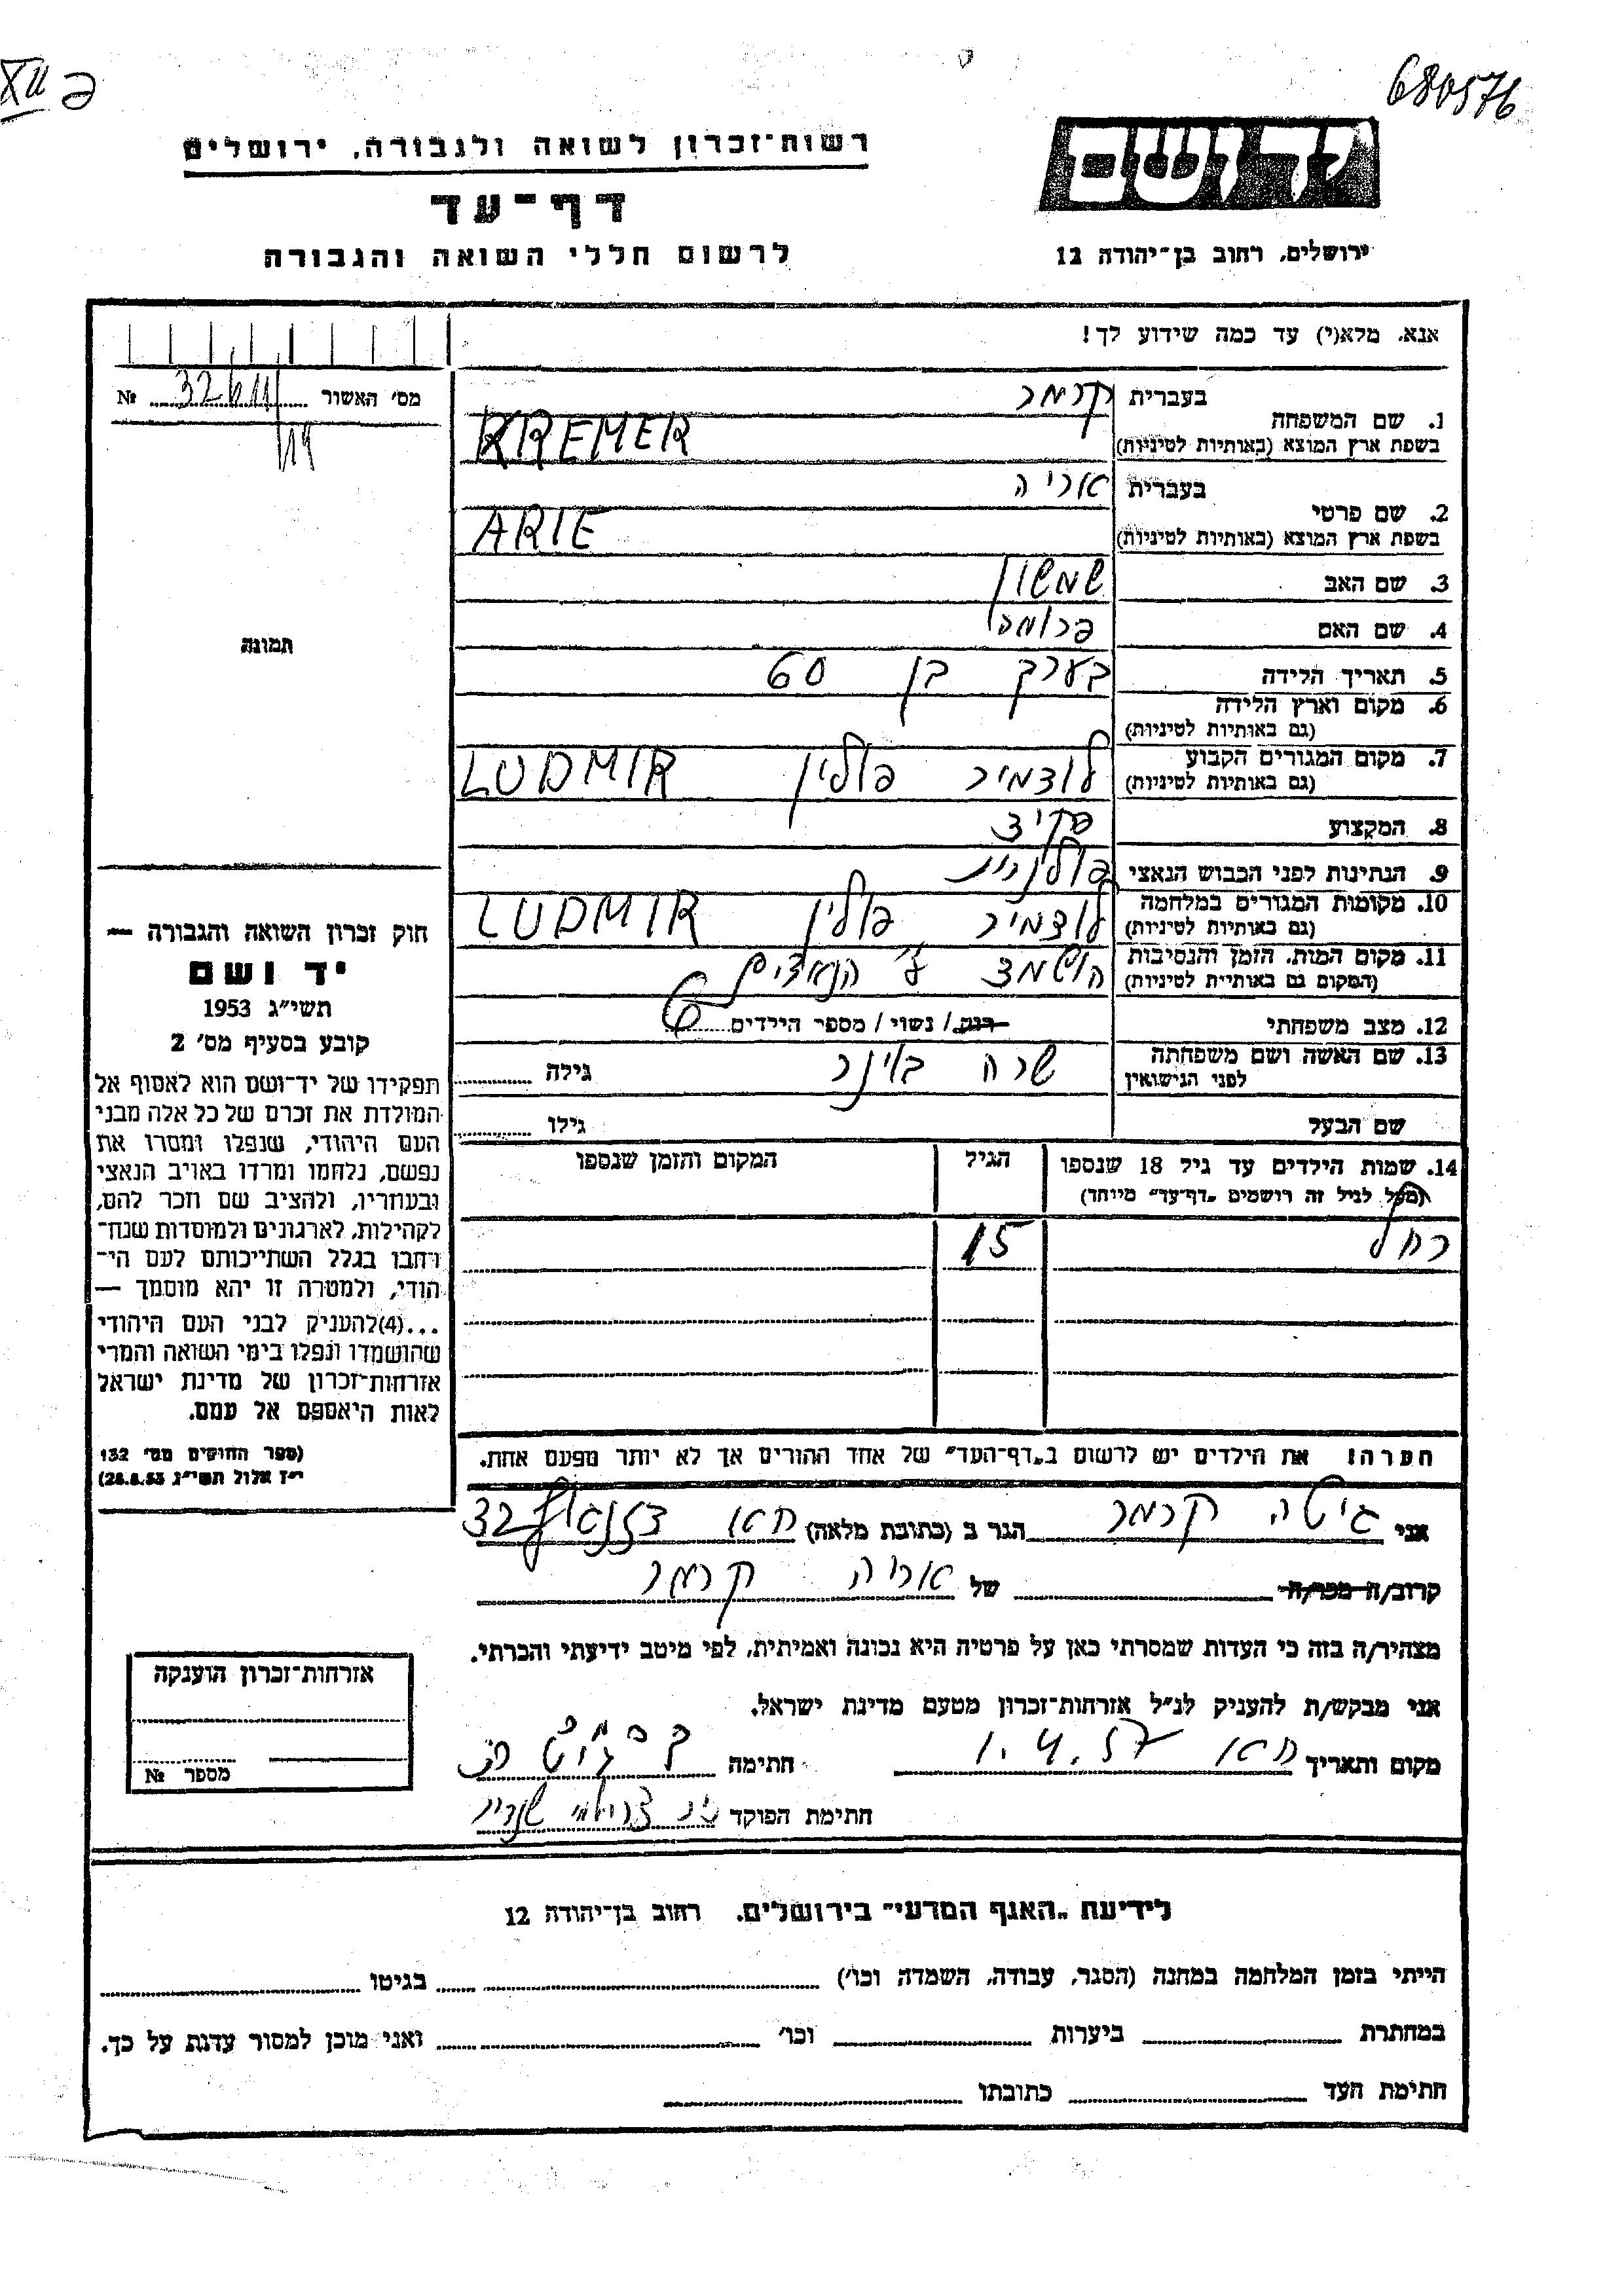 XII פ
680576
רשות־זכרון לשואה ולגבורה, ירושלים
יד ושם
דף־עד
לרשום חללי השואה והגבורה
ירושלים, רחוב בן־יהודה 12
אנא, מלא(י) עד כמה שידוע לך!
מס' האשור № 32611
בעברית קרמר
1. שם המשפחה
בשפת ארץ המוצא (באותיות לטיניות) KREMER
בעברית אריה
2. שם פרטי
בשפת ארץ המוצא (באותיות לטיניות) ARIE
3. שם האב שמשון
4. שם האם פרומה
תמונה
5. תאריך הלידה בערך בן 60
6. מקום וארץ הלידה
(גם באותיות לטיניות)
7. מקום המגורים הקבוע לודמיר פולין LUDMIR
(גם באותיות לטיניות)
8. המקצוע פקיד
9. הנתינות לפני הכבוש הנאצי פולנית
10. מקומות המגורים במלחמה לודמיר פולין LUDMIR
(גם באותיות לטיניות)
11. מקום המות, הזמן והנסיבות הושמד ע"י הנאצים
(המקום גם באותיות לטיניות)
12. מצב משפחתי רווק / נשוי / מספר הילדים 6
13. שם האשה ושם משפחתה שרה גילה
לפני הנישואין
שם הבעל גילו
14. שמות הילדים עד גיל 18 שנספו הגיל המקום והזמן שנספו
(מעל לגיל זה רושמים „דף־עד" מיוחד)
רחל 15
הערה! את הילדים יש לרשום ב„דף־העד" של אחד ההורים אך לא יותר מפעם אחת.
חוק זכרון השואה והגבורה —
יד ושם
תשי"ג 1953
קובע בסעיף מס' 2
תפקידו של יד־ושם הוא לאסוף אל
המולדת את זכרם של כל אלה מבני
העם היהודי, שנפלו ומסרו את
נפשם, נלחמו ומרדו באויב הנאצי
ובעוזריו, ולהציב שם וזכר להם,
לקהילות, לארגונים ולמוסדות שנח־
רבו בגלל השתייכותם לעם הי־
הודי, ולמטרה זו יהא מוסמך —
...(4)להעניק לבני העם היהודי
שהושמדו ונפלו בימי השואה והמרי
אזרחות־זכרון של מדינת ישראל
לאות היאספם אל עמם.
(ספר החוקים מס' 132
י"ז אלול תשי"ג 28.8.53)
אני גיטה קרמר הגר ב (כתובת מלאה) 32
קרוב/ה מכר/ה של אריה קרמר
מצהיר/ה בזה כי העדות שמסרתי כאן על פרטיה היא נכונה ואמיתית, לפי מיטב ידיעתי והכרתי.
אני מבקש/ת להעניק לנ"ל אזרחות־זכרון מטעם מדינת ישראל.
מקום ותאריך 1.4.57 חתימה
חתימת הפוקד
אזרחות־זכרון הוענקה
מספר №
לידיעת „האגף המדעי" בירושלים, רחוב בן־יהודה 12
הייתי בזמן המלחמה במחנה (הסגר, עבודה, השמדה וכו') בגיטו
במחתרת ביערות וכו' ואני מוכן למסור עדות על כך.
חתימת העד כתובתו